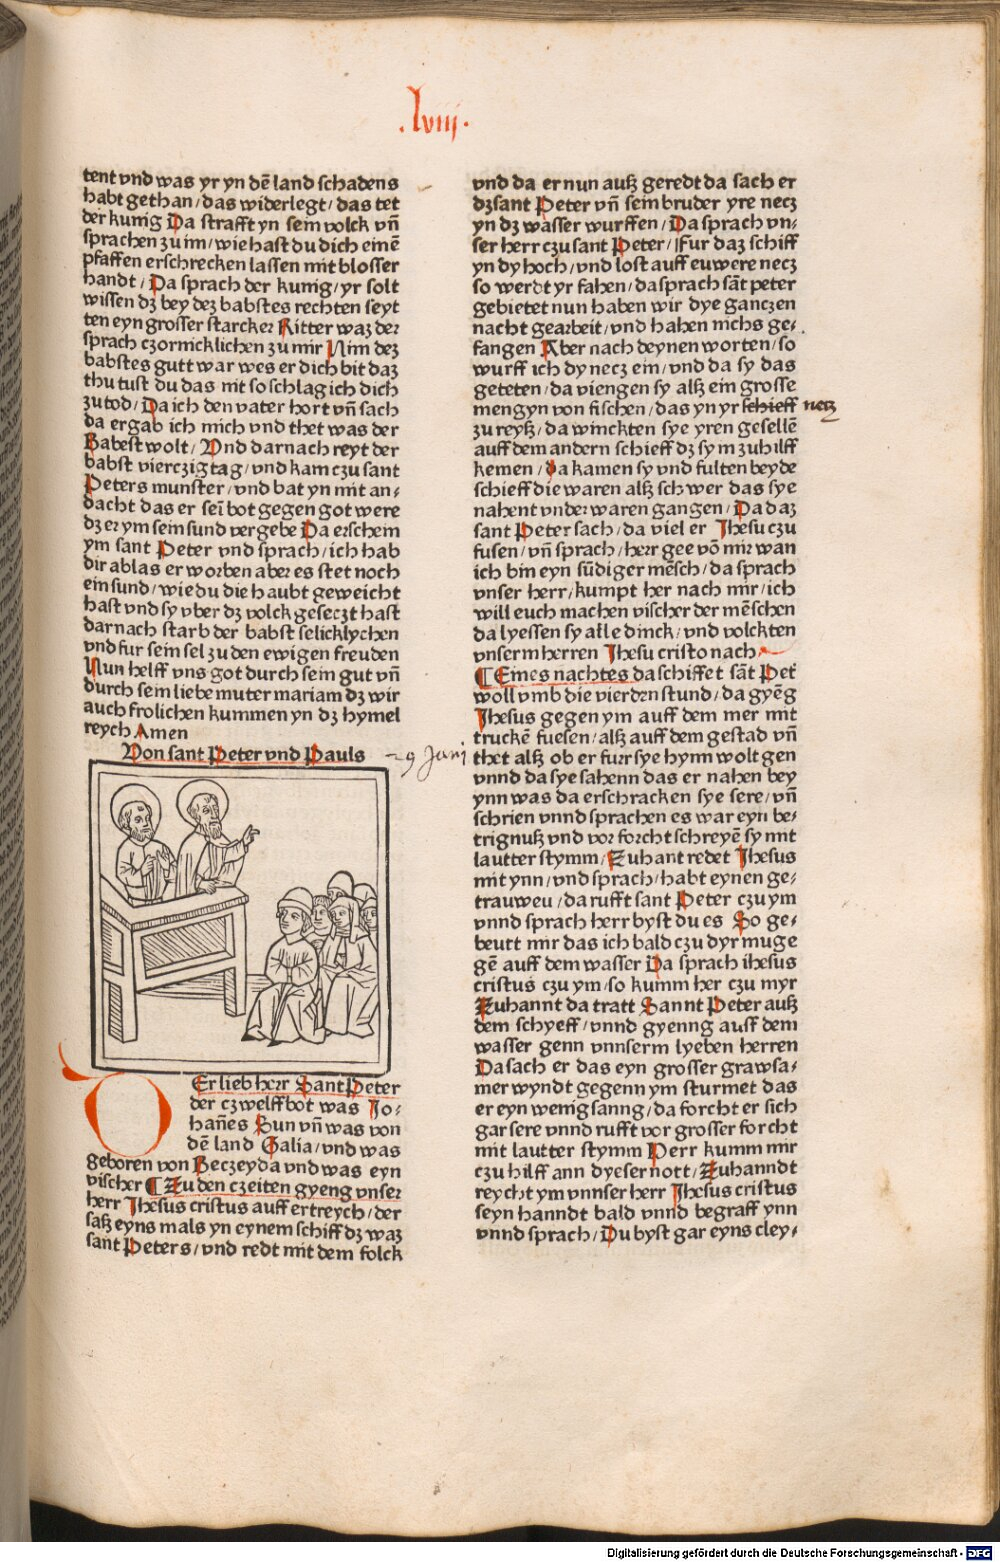 .lviij.
tent vnd was yr yn dē land schadens
habt gethan/das widerlegt/das tet
der kunig Da strafft yn sein volck vn̄
sprachen zu im/wie hast du dich einē
pfaffen erschrecken lassen mit blosser
handt/Da sprach der kunig/yr solt
wissen dz bey dez babstes rechten seyt
ten eyn grosser starcker Ritter waz der
sprach czornicklichen zu mir Nim dez
babstes gutt war wes er dich bit daz
thu tust du das nit so schlag ich dich
zu tod/Da ich den vater hort vn̄ sach
da ergab ich mich vnd thet was der
Babest wolt/Vnd darnach reyt der
babst vierczig tag/vnd kam czu sant
Peters munster/vnd bat yn mit an⸗
dacht das er sei bot gegen got were
dz er ym sein sund vergebe Da erschein
ym sant Peter vnd sprach/ich hab
dir ablas erworben aber es stet noch
ein sund/wie du die haubt geweicht
hast vnd sy vber dz volck geseczt hast
darnach starb der babst selicklychen
vnd fur sein sel zu den ewigen freuden
Nun helff vns got durch sein gut vn̄
durch sein liebe muter mariam dz wir
auch frolichen kummen yn dz hymel
reych Amen
Von sant Peter vnd Pauls
29 Juni
DEr lieb herr Sant Peter
der czwelffbot was Jo⸗
han̄es Sun vn̄ was von
dē land Galia/vnd was
geboren von Beczeyda vnd was eyn
vischer ¶ Zu den czeiten gyeng vnser
herr Jhesus cristus auff ertreych/der
saß eyns mals yn eynem schiff dz waz
sant Peters/vnd redt mit dem folck
vnd da er nun auß geredt da sach er
dz sant Peter vn̄ sein bruder yre necz
yn dz wasser wurffen/Da sprach vn⸗
ser herr czu sant Peter/Fur daz schiff
yn dy hoch/vnd lost auff euwere necz
so werdt yr fahen/da sprach sāt peter
gebietet nun haben wir dye ganczen
nacht gearbeit/vnd haben nichs ge⸗
fangen Aber nach deynen worten/so
wurff ich dy necz ein/vnd da sy das
geteten/da viengen sy alß ein grosse
mengyn von fischen/das yn yr schieff necz
zu reyß/da winckten sye yren gesellē
auff dem andern schieff dz sy in zu hilff
kemen/da kamen sy vnd fulten beyde
schieff die waren alß schwer das sye
nahent vnder waren gangen/Da daz
sant Peter sach/da viel er Jhesu czu
fusen/vn̄ sprach/herr gee vō mir wan
ich bin eyn sūdiger mēsch/da sprach
vnser herr/kumpt her nach mir/ich
will euch machen vischer der mēschen
da lyessen sy alle dinck/vnd volckten
vnserm herren Jhesu cristo nach
¶ Eines nachtes da schiffet sāt Pet̄
woll vmb die vierden stund/da gyēg
Jhesus gegen ym auff dem mer mit
truckē fuesen/alß auff dem gestad vn̄
thet alß ob er fur sye hyn wolt gen
vnnd da sye sahenn das er nahen bey
ynn was da erschracken sye sere/vn̄
schrien vnnd sprachen es war eyn be⸗
trignuß vnd vor forcht schreyē sy mit
lautter stymm/Zuhant redet Jhesus
mit ynn/vnd sprach/habt eynen ge⸗
trauweu/da rufft sant Peter czu ym
vnnd sprach herr byst du es So ge⸗
beutt mir das ich bald czu dyr muge
gē auff dem wasser Da sprach ihesus
cristus czu ym/so kumm her czu myr
Zuhannt da tratt Sannt Peter auß
dem schyeff/vnnd gyenng auff dem
wasser genn vnnserm lyeben herren
Da sach er das eyn grosser grawsa⸗
mer wyndt gegenn ym sturmet das
er eyn wenig sanng/da forcht er sich
gar sere vnnd rufft vor grosser forcht
mit lautter stymm Herr kumm mir
czu hilff ann dyeser nott/Zuhanndt
reycht ym vnnser herr Jhesus cristus
seyn hanndt bald vnnd begraff ynn
vnnd sprach/Du byst gar eyns cley⸗
Digitalisierung gefördert durch die Deutsche Forschungsgemeinschaft - DFG